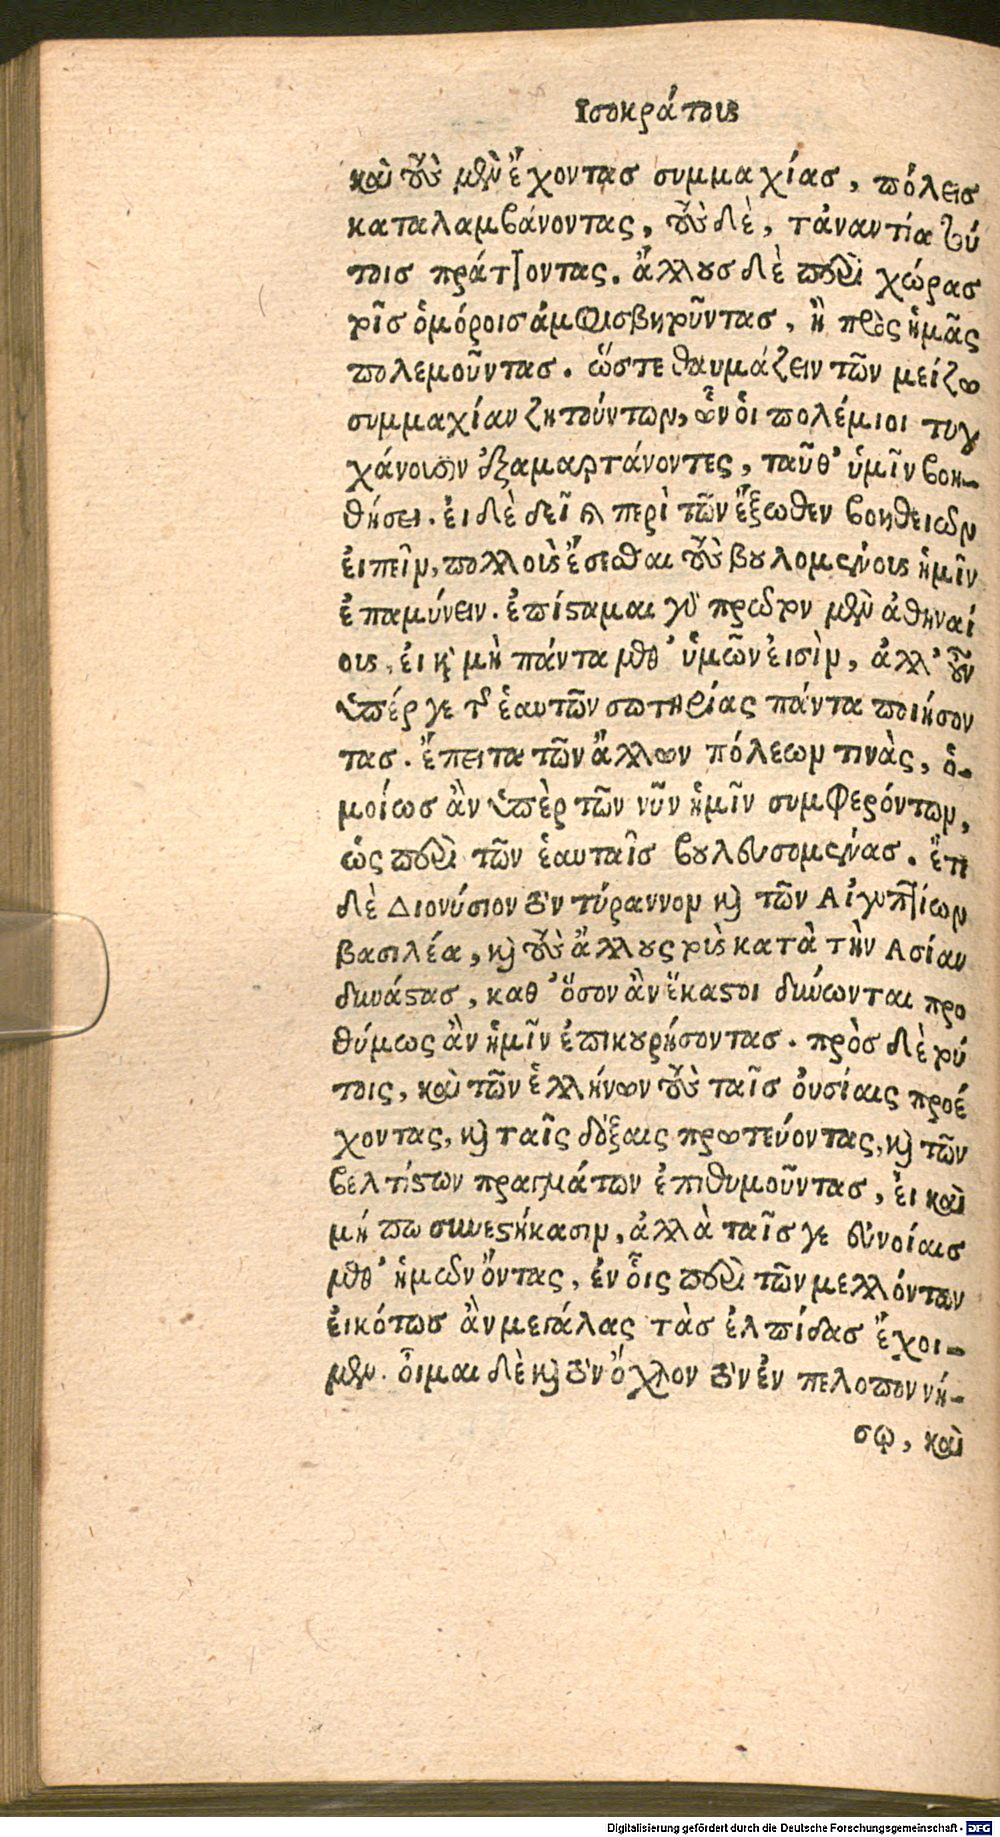 Ισοκράτους
καὶ τοὺς μὲν ἔχοντας συμμαχίας, πόλεις
καταλαμβάνοντας, τοὺς δὲ, τἀναντία τού
τοις πράττοντας. ἄλλους δὲ περὶ χώρας
τοῖς ὁμόροις ἀμφισβητοῦντας, ἢ πρὸς ἡμᾶς
πολεμοῦντας. ὥστε θαυμάζειν τῶν μείζω
συμμαχίαν ζητούντων, ὧν οἱ πολέμιοι τυγ
χάνουσιν ἐξαμαρτάνοντες, ταῦθ' ὑμῖν βοη-
θήσει. εἰ δὲ δεῖ καὶ περὶ τῶν ἔξωθεν βοηθειῶν
εἰπεῖν, πολλοὺς ἔσεσθαι τοὺς βουλομένους ἡμῖν
ἐπαμύνειν. ἐπίσταμαι γὰρ πρῶτον μὲν ἀθηναί
ους, εἰ καὶ μὴ πάντα μεθ' ὑμῶν εἰσὶν, ἀλλ' οὖν
ὑπέρ γε τῆς ἑαυτῶν σωτηρίας πάντα ποιήσον
τας. ἔπειτα τῶν ἄλλων πόλεων τινὰς, ὁ-
μοίως ἂν ὑπὲρ τῶν νῦν ἡμῖν συμφερόντων,
ὡς περὶ τῶν ἑαυταῖς βουλευσομένας. ἔτι
δὲ Διονύσιον τὸν τύραννον καὶ τῶν Αἰγυπτίων
βασιλέα, καὶ τοὺς ἄλλους τοὺς κατὰ τὴν Ασίαν
δυνάστας, καθ' ὅσον ἂν ἕκαστοι δυνώνται προ
θύμως ἂν ἡμῖν ἐπικουρήσοντας. πρὸς δὲ τού
τοις, καὶ τῶν ἑλλήνων τοὺς ταῖς οὐσίαις προέ
χοντας, καὶ ταῖς δόξαις πρωτεύοντας, καὶ τῶν
βελτίστων πραγμάτων ἐπιθυμοῦντας, εἰ καὶ
μή πω συνεστήκασιν, ἀλλὰ ταῖς γε εὐνοίαις
μεθ' ἡμῶν ὄντας, ἐν οἷς περὶ τῶν μελλόντων
εἰκότως ἂν μεγάλας τὰς ἐλπίδας ἔχοι-
μεν. οἶμαι δὲ καὶ τὸν ὄχλον τὸν ἐν πελοποννή-
σῳ, καὶ
Digitalisierung gefördert durch die Deutsche Forschungsgemeinschaft - DFG